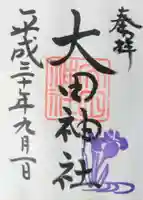 奉拝
大田神社
平成三十年九月一日